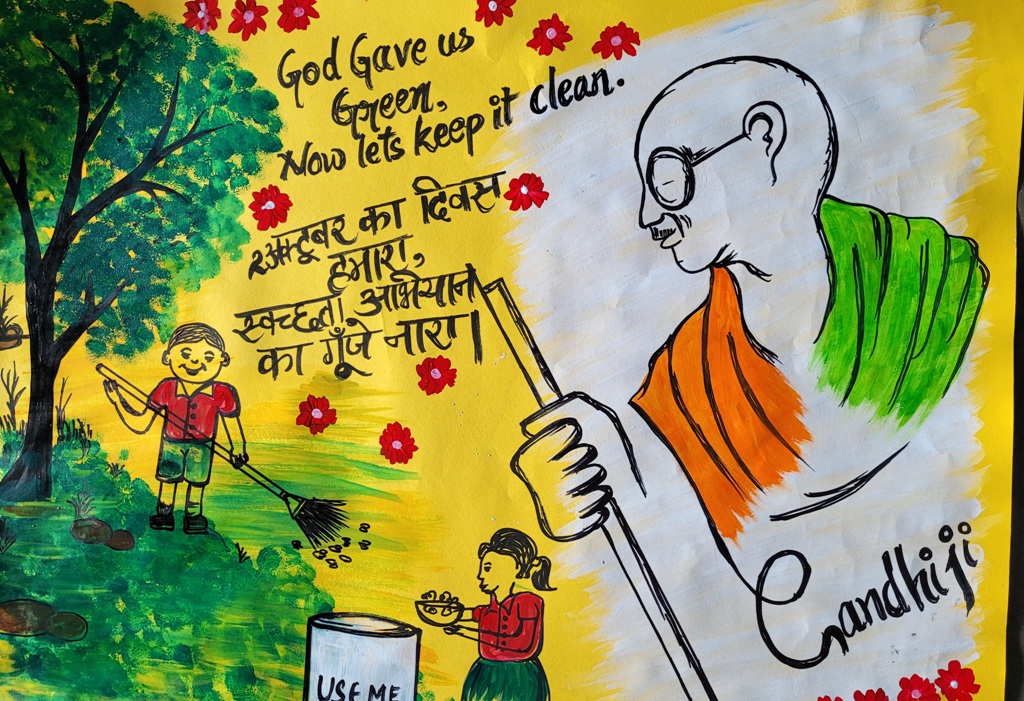 God Gave us
Green,
Now lets keep it clean.
2 अक्टूबर का दिवस
हमारा,
स्वच्छता अभियान
का गूँजे नारा।
Gandhiji
USE ME